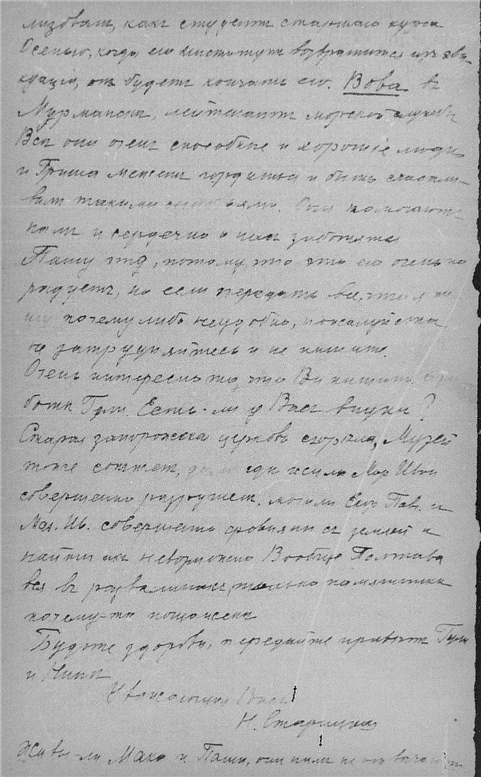 лизован, какъ студентъ старшаго курса
Осенью, когда его институтъ возвратится изъ эва-
куаціи, онъ будетъ кончать его. Вова въ
Мурманскѣ, лейтенантъ морской службы
Всѣ они очень способные и хорошіе люди
и Гриша можетъ гордиться и быть счастли-
вымъ такими сыновьями. Они помогаютъ
намъ и сердечно о насъ заботятся
Пашу потому, что это его очень по
радуетъ, но если передать все, что я пи
шу почему либо неудобно, пожалуйста
не затрудняйтесь и не пишите.
Очень интересно то, что Вы пишите о ра
ботѣ Гри. Есть-ли у Васъ внуки?
Старая запорожская церковь сгорѣла, Музей
тоже сожжен, гдѣ жили Мар Ив
совершенно разрушен, могилы Елиз Пав. и
Ив. совершенно сровняли съ землей и
найти ихъ невозможно Вообще Полтава
вся въ развалинахъ, только памятники
почему-то пощажены
Будьте здоровы, передайте привѣтъ
и Нинѣ
Уважающая Васъ
Н.
Живы-ли и Паша, они намъ не